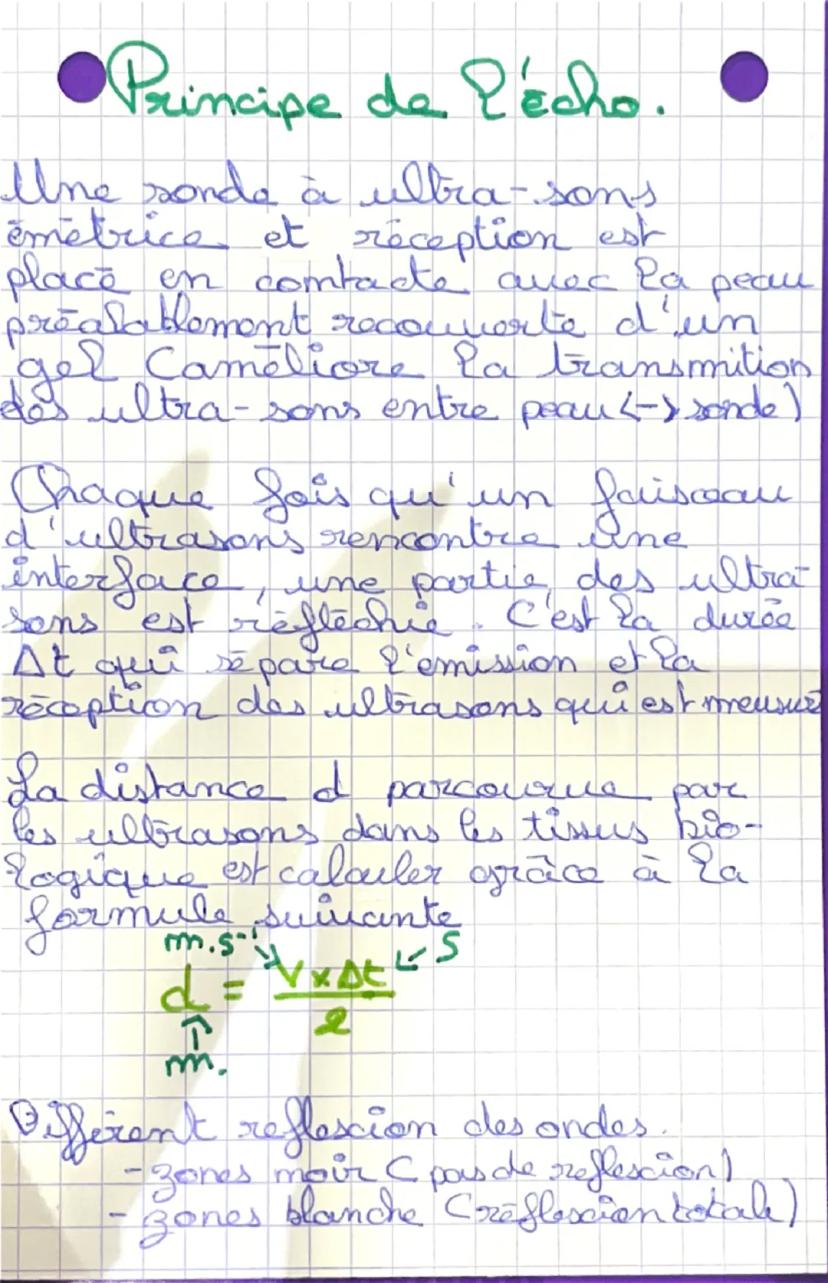 Principe de l'écho.
Une sonde à ultra-sons
émétrice et réception est
placé en contacte avec la peau
préalablement recouverte d'un
gel (améliore la transmition
des ultra-sons entre peau <-> sonde)
Chaque fois qu'un faisceau
d'ultrasons rencontre une
interface, une partie des ultra-
sons est réfléchie. C'est la durée
Δt qui sépare l'emission et la
réception des ultrasons qui est mesuré
La distance d parcourue par
les ultrasons dans les tissus bio-
logique est calculer grâce à la
formule suivante
m.s⁻¹ ↘ ↙ s
d = V x Δt / 2
↑
m.
Différent reflexcion des ondes.
- zones noir (pas de reflexcion)
- zones blanche (réflexcion totale)